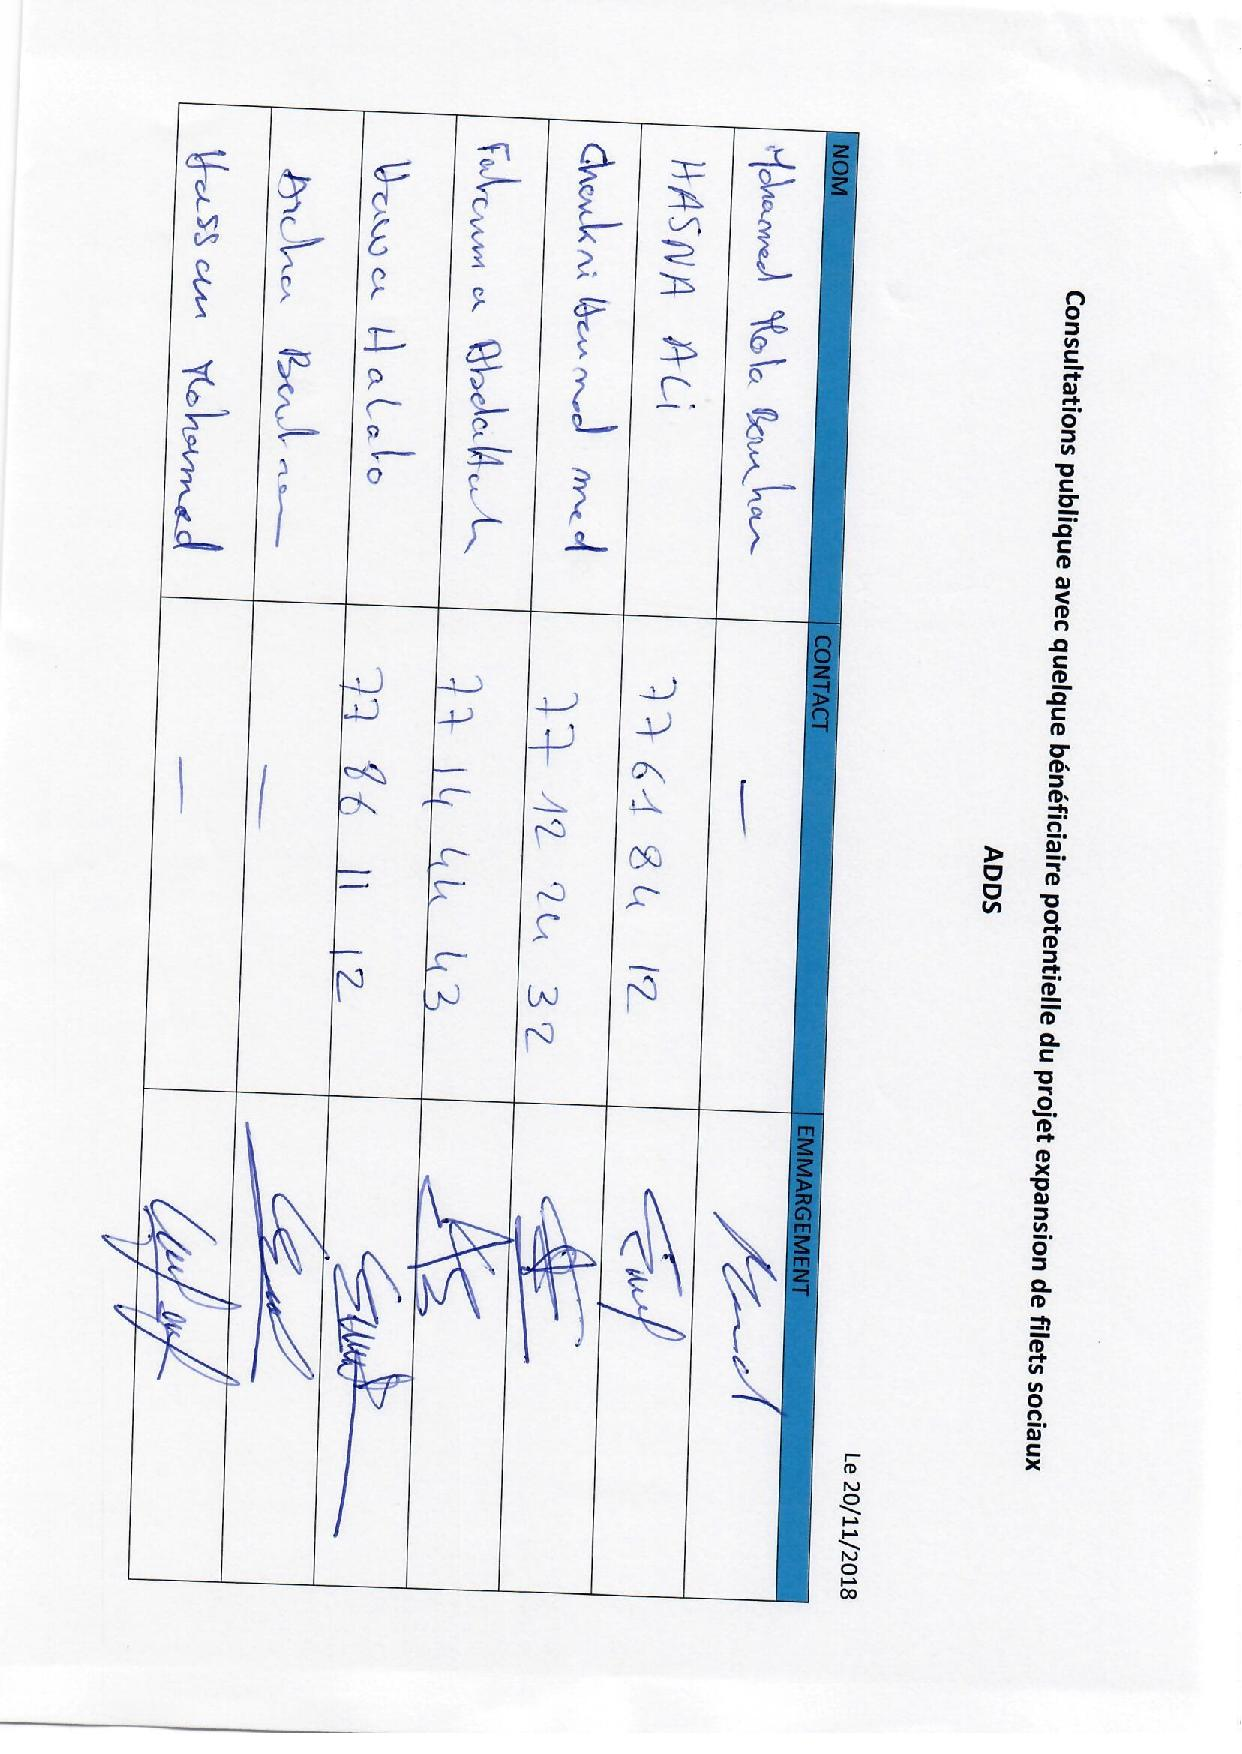 Consultations publique avec quelque bénéficiaire potentielle du projet expansion de filets sociaux
ADDS
Le 20/11/2018
NOM CONTACT EMMARGEMENT
Mohamed —
HASNA ALi 77 61 84 12
med 77 12 24 32
Fatouma Abdallah 77 14 44 43
Hawa Halato 77 86 11 12
Aicha —
Hassan Mohamed —